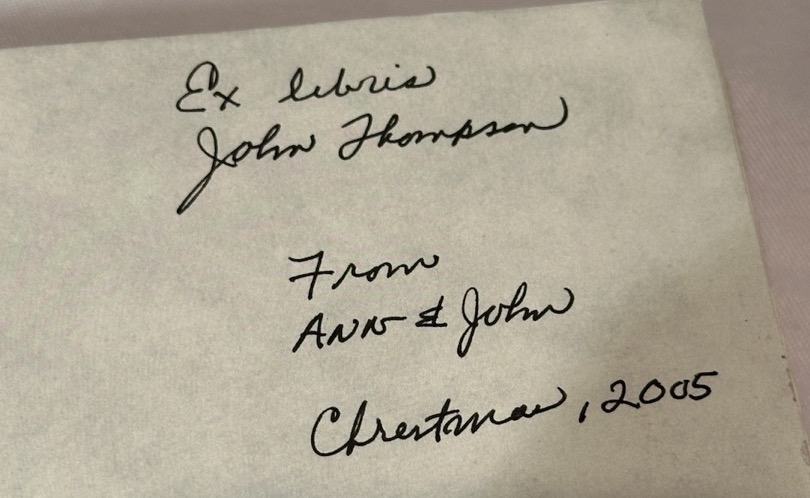 Ex libris
John Thompson
From
Ann & John
Christmas, 2005